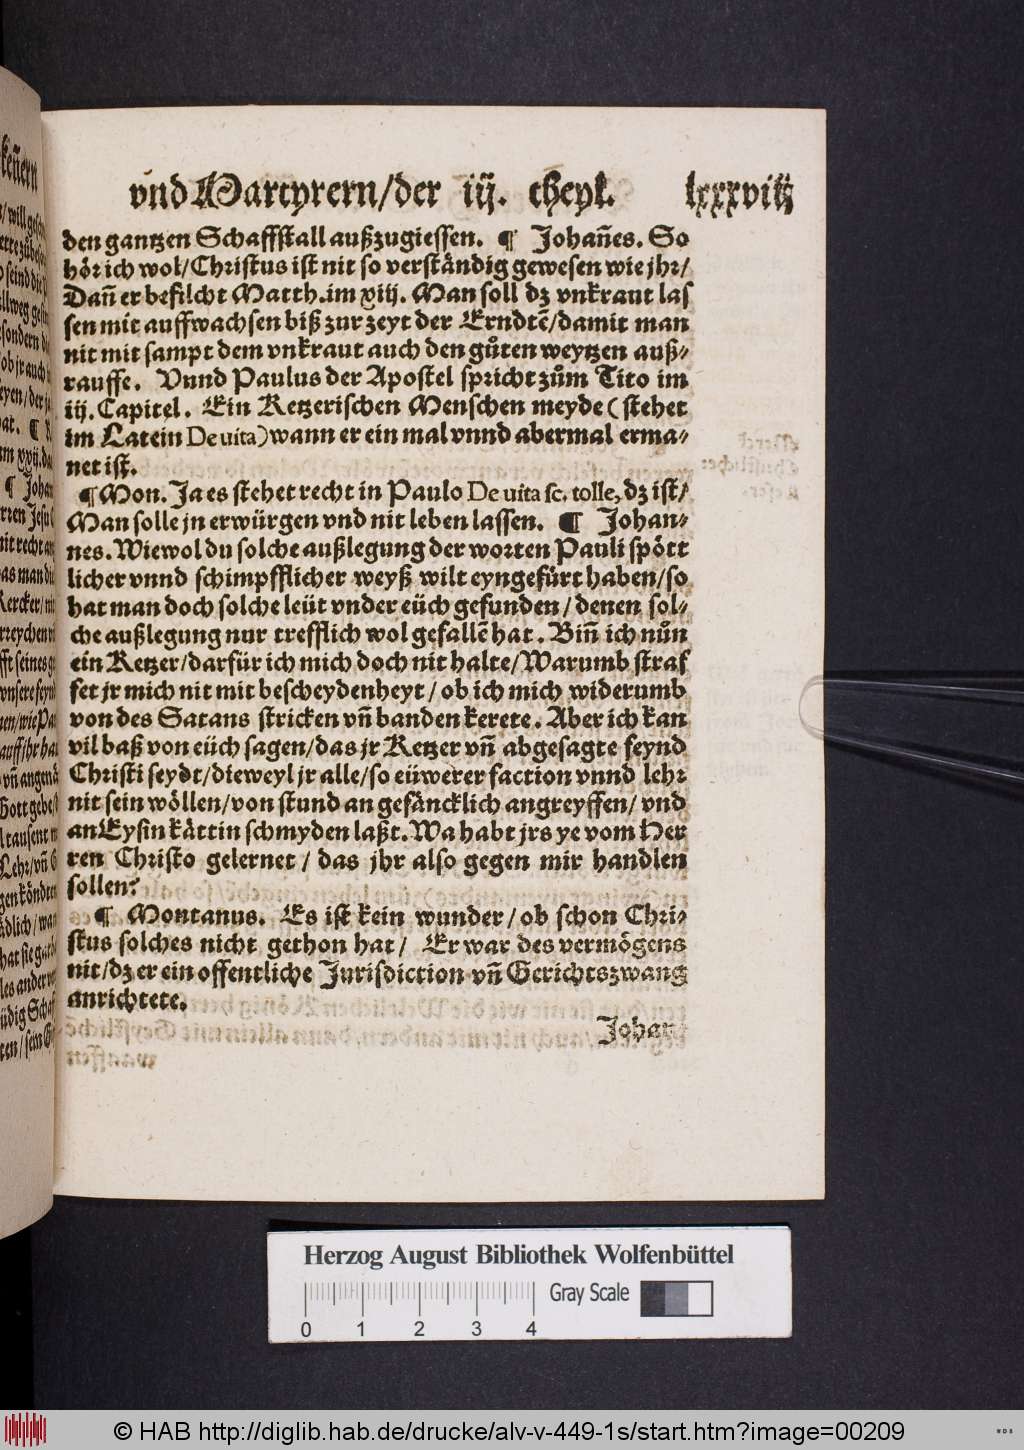 vnd Martyrern/der iij. theyl. lxxxviij
den gantzen Schaffstall außzugiessen. ¶ Johañes. So
hör ich wol/Christus ist nit so verständig gewesen wie jhr/
Dañ er befilcht Matth.im xiij. Man soll dz vnkraut las
sen mit auffwachsen biß zur zeyt der Erndtē/damit man
nit mit sampt dem vnkraut auch den gůten weytzen auß⸗
rauffe. Vnnd Paulus der Apostel spricht zům Tito im
iij. Capitel. Ein Ketzerischen Menschen meyde (stehet
im Latein De uita) wann er ein mal vnnd abermal erma⸗
net ist.
¶ Mon. Ja es stehet recht in Paulo De uita sc. tolle, dz ist/
Man solle jn erwürgen vnd nit leben lassen. ¶ Johan⸗
nes. Wiewol du solche außlegung der worten Pauli spött
licher vnnd schimpfflicher weyß wilt eyngefürt haben/so
hat man doch solche leüt vnder eüch gefunden/denen sol⸗
che außlegung nur trefflich wol gefallē hat. Biñ ich nůn
ein Ketzer/darfür ich mich doch nit halte/Warumb straf
fet jr mich nit mit bescheydenheyt/ob ich mich widerumb
von des Satans stricken vñ banden kerete. Aber ich kan
vil baß von eüch sagen/das jr Ketzer vñ abgesagte feynd
Christi seydt/dieweyl jr alle/so eüwerer faction vnnd lehr
nit sein wöllen/von stund an gefäncklich angreyffen/vnd
an Eysin kättin schmyden laßt. Wa habt jrs ye vom Her
ren Christo gelernet/das jhr also gegen mir handlen
sollen?
¶ Montanus. Es ist kein wunder/ob schon Chri⸗
stus solches nicht gethon hat/ Er war des vermögens
nit/dz er ein offentliche Jurisdiction vñ Gerichtszwang
anrichtete.
Johan
Herzog August Bibliothek Wolfenbüttel
Gray Scale
0 1 2 3 4
© HAB http://diglib.hab.de/drucke/alv-v-449-1s/start.htm?image=00209